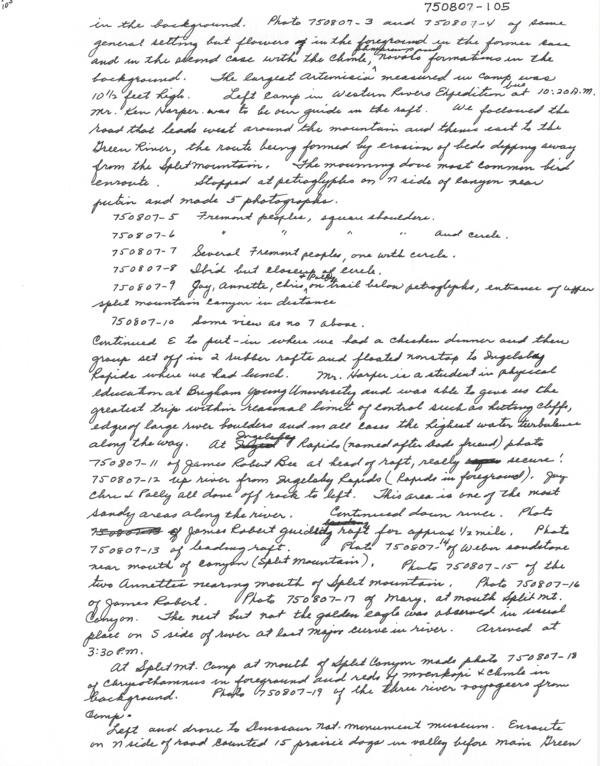 103
750807-105
in the background. Photo 750807-3 and 750807-4 of same
general setting but flowers of in the foreground in the former case
and in the second case with the Chinle, rivals formations in the
background. The largest Artemisia measured in camp was
10 1/2 feet high. Left camp in Western Rivers Expedition bus at 10:20 A.M.
Mr. Ken Harper was to be our guide in the raft. We followed the
road that leads west around the mountain and thence east to the
Green River, the route being formed by erosion of beds dipping away
from the Split Mountain. The mourning dove most common bird
enroute. Stopped at petroglyphs on N side of canyon near
putin and made 5 photographs.
750807-5 Fremont peoples, square shoulders.
750807-6 " " " " and circle.
750807-7 Several Fremont peoples, one with circle.
750807-8 Ibid but closeup of circle.
750807-9 Jay, Annette, Chris & Polly on trail below petroglyphs, entrance of upper
split mountain canyon in distance
750807-10 Same view as no 7 above.
Continued E to put-in where we had a chicken dinner and then
group set off in 2 rubber rafts and floated nonstop to Ingelsby
Rapids where we had lunch. Mr. Harper is a student in physical
education at Brigham Young University and was able to give us the
greatest trip within reasonal limit of control such as hitting cliffs,
edge of large river boulders and in all cases the highest water turbulence
along the way. At Ingelsby Rapids (named after dads friend) photo
750807-11 of James Robert Bee at head of raft, really secure!
750807-12 up river from Ingelsby Rapids (Rapids in foreground). Jay
Chris & Polly all done off rock to left. This area is one of the most
sandy areas along the river. Continued down river. Photo
750807- of James Robert guiding raft for approx 1/2 mile. Photo
750807-13 of leading raft. Photo 750807-14 of Weber sandstone
near mouth of canyon (Split Mountain). Photo 750807-15 of the
two Annettes nearing mouth of Split Mountain. Photo 750807-16
of James Robert. Photo 750807-17 of Mary, at mouth Split Mt.
Canyon. The nest but not the golden eagle was observed in usual
place on S side of river at last major curve in river. Arrived at
3:30 P.M.
At Split Mt. Camp at mouth of Split Canyon made photo 750807-18
of Chrysothamnus in foreground and reds of moenkopi & Chinle in
background. Photo 750807-19 of the three river voyageers from
Camp.
Left and drove to Dinosaur Nat. monument museum. Enroute
on N side of road counted 15 prairie dogs in valley before main Green